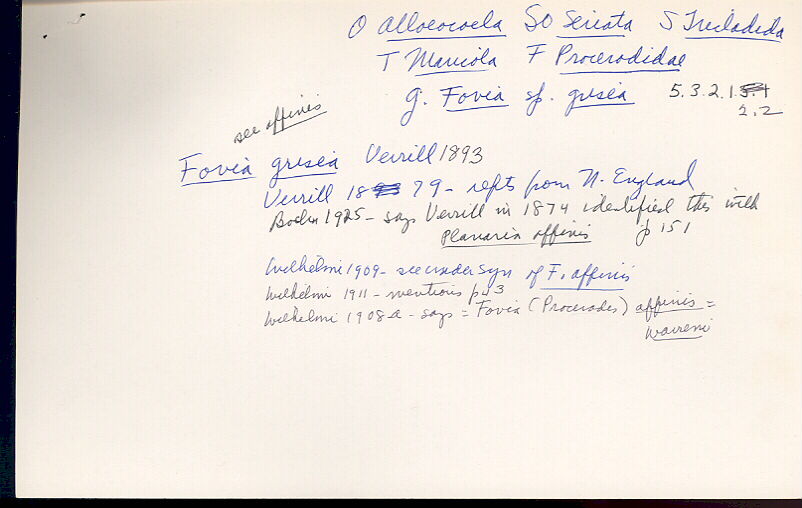 O Alloeocoela SO Seriata S Tricladida
T Maricola F Procerodidae
g. Fovia sp. grisea 5.3.2.1.
2.2
see affinis
Fovia grisea Verrill 1893
Verrill 18 79 - repts from N. England
Bock 1925 - says Verrill in 1874 identified this with
Planaria affinis p 151
Wilhelmi 1909 - see under syn of F. affinis
Wilhelmi 1911 - mentions p 3
Wilhelmi 1908a - says = Fovia (Procerodes) affinis =
warreni